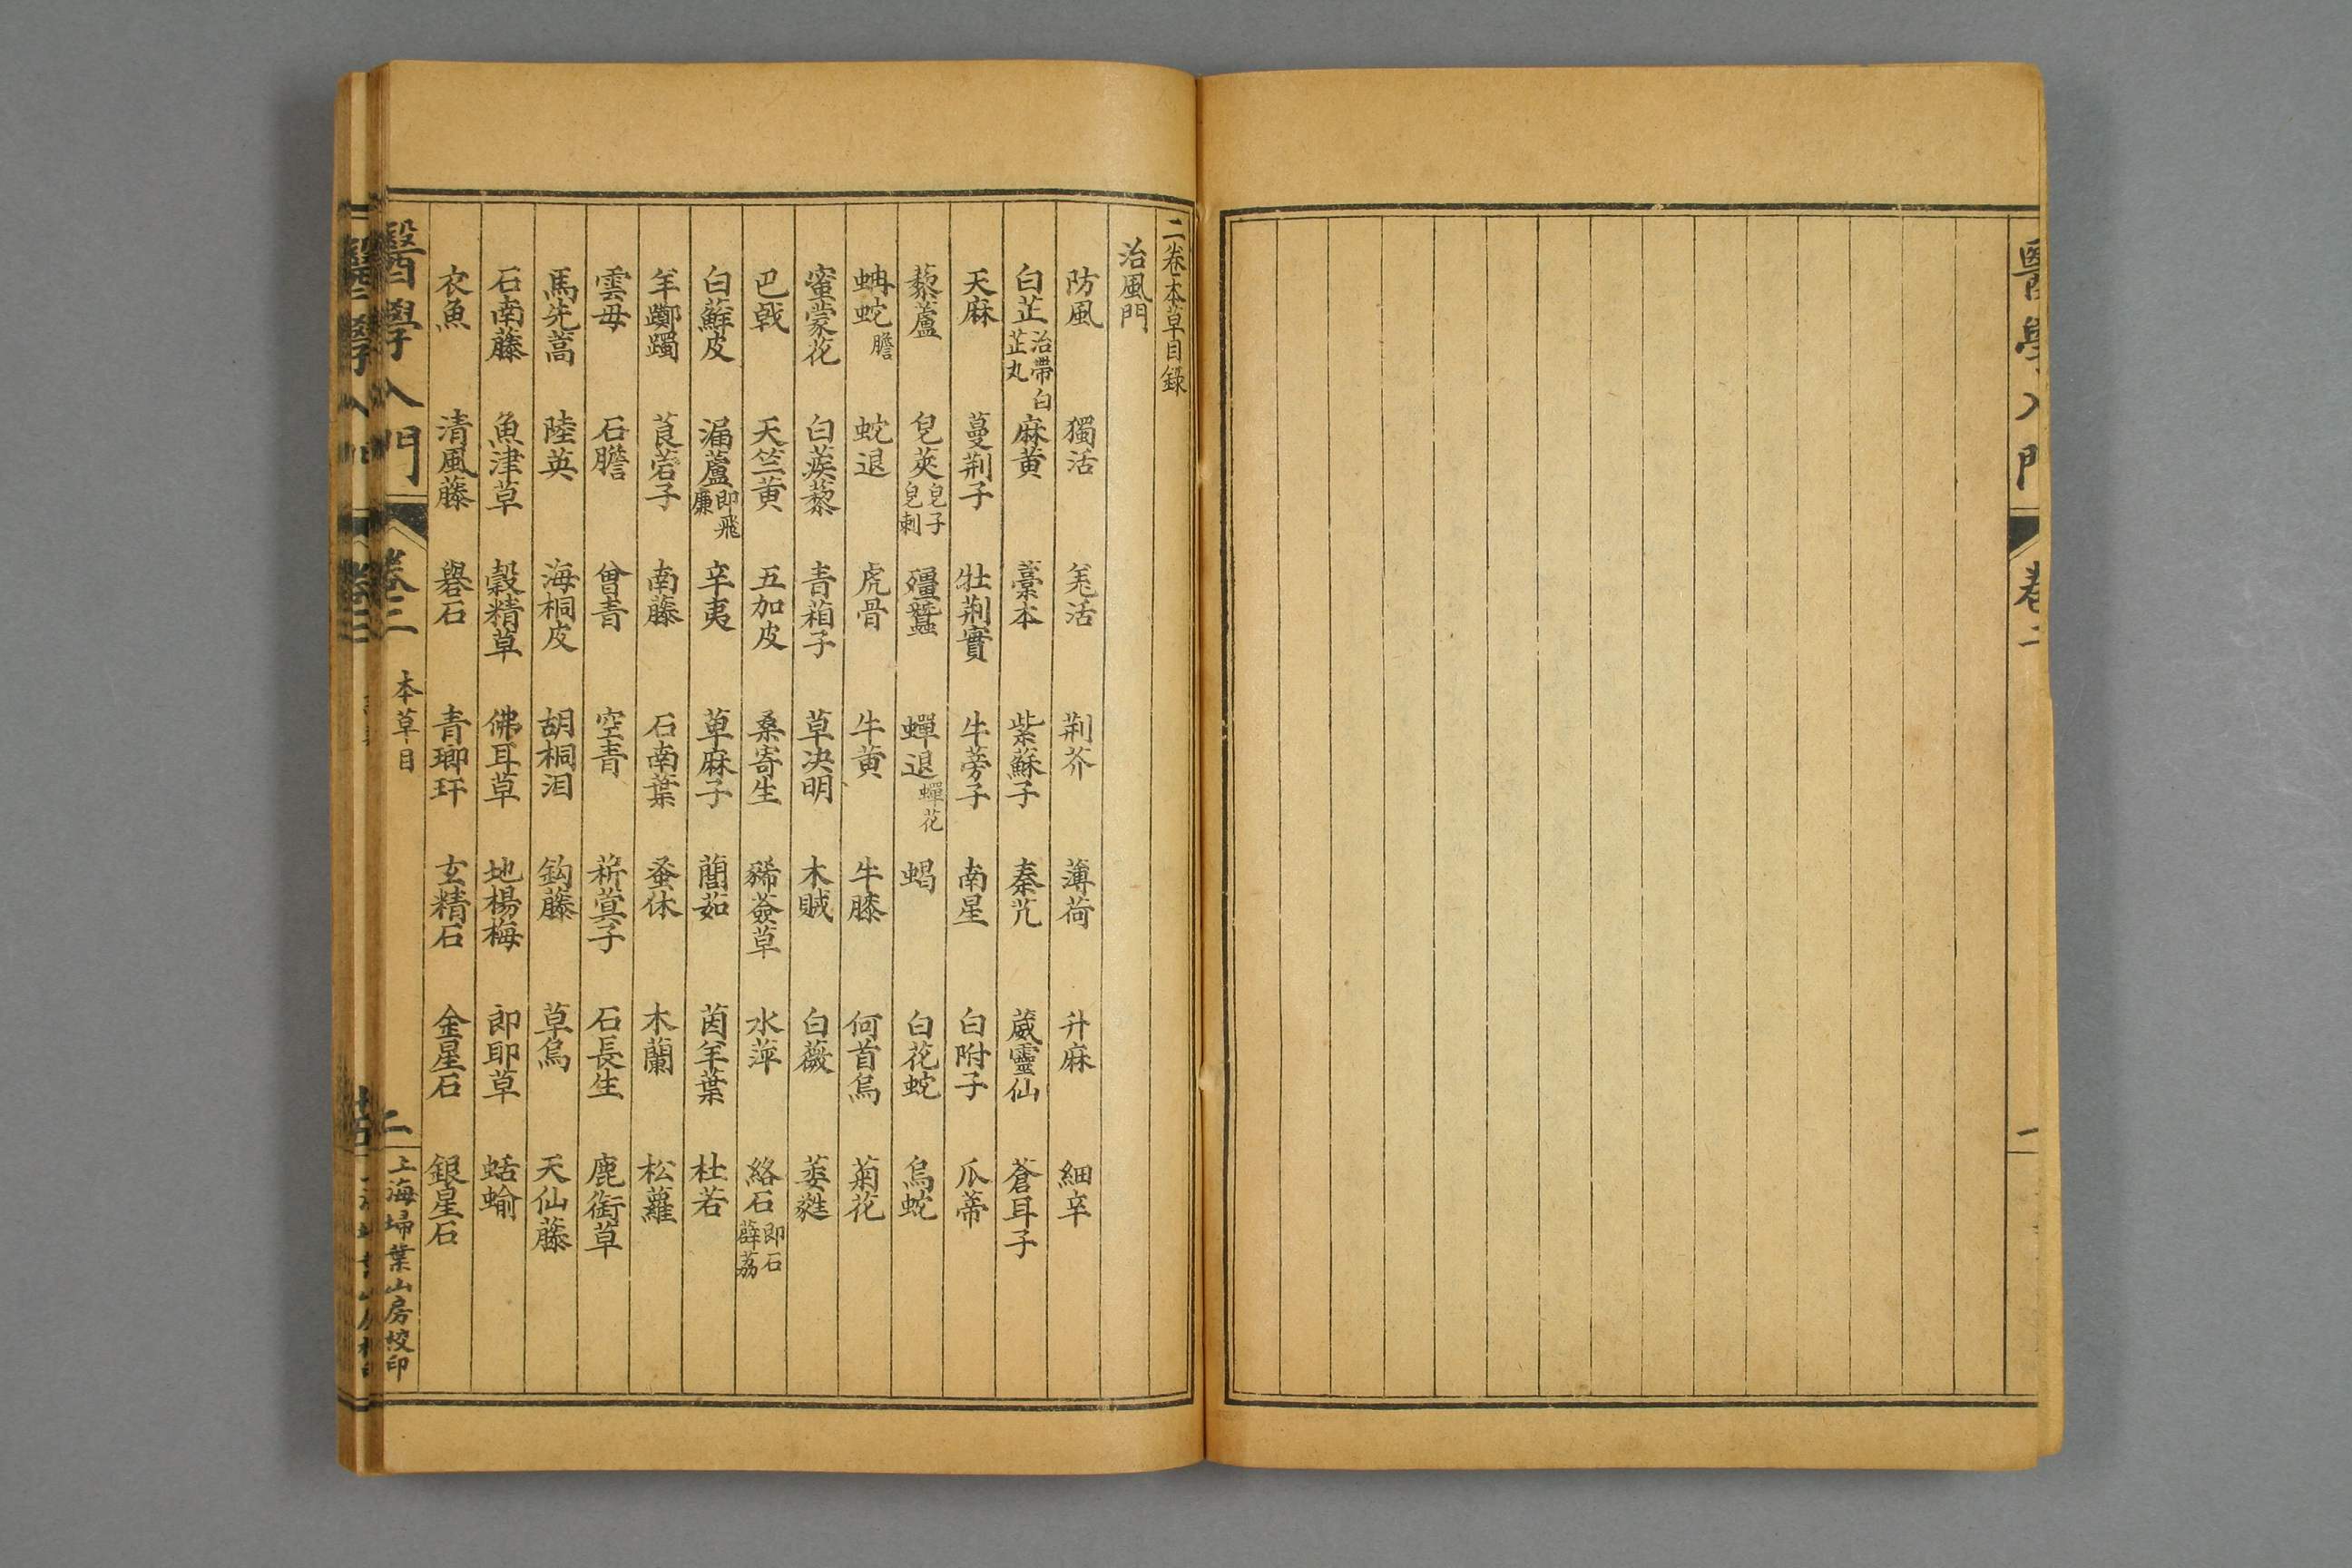 二卷本草目錄
治風門
防風 獨活 羌活 荊芥 薄荷 升麻 細辛
白芷治帶白芷丸 麻黄 藁本 紫蘇子 秦艽 葳靈仙 蒼耳子
天麻 蔓荊子 牡荊實 牛蒡子 南星 白附子 瓜蒂
藜蘆 皂莢皂子皂刺 殭蠶 蟬退蟬花 蝎 白花蛇 烏蛇
蚺蛇膽 蛇退 虎骨 牛黄 牛膝 何首烏 菊花
蜜蒙花 白蒺藜 青葙子 草决明 木賊 白薇 萎蕤
巴戟 天竺黄 五加皮 桑寄生 豨薟草 水萍 絡石即石薜荔
白蘚皮 漏蘆即飛廉 辛夷 萆麻子 䕡茹 茵芋葉 杜若
羊躑躅 莨菪子 南藤 石南葉 蚤休 木蘭 松蘿
雲母 石膽 曾青 空青 菥蓂子 石長生 鹿銜草
馬先蒿 陸英 海桐皮 胡桐泪 鈎藤 草烏 天仙藤
石南藤 魚津草 穀精草 佛耳草 地楊梅 郎耶草 蛞蝓
衣魚 清風藤 礜石 青瑯玕 玄精石 金星石 銀星石
醫學入門 卷二 本草目 二 上海埽葉山房校印
醫學入門 卷二 一